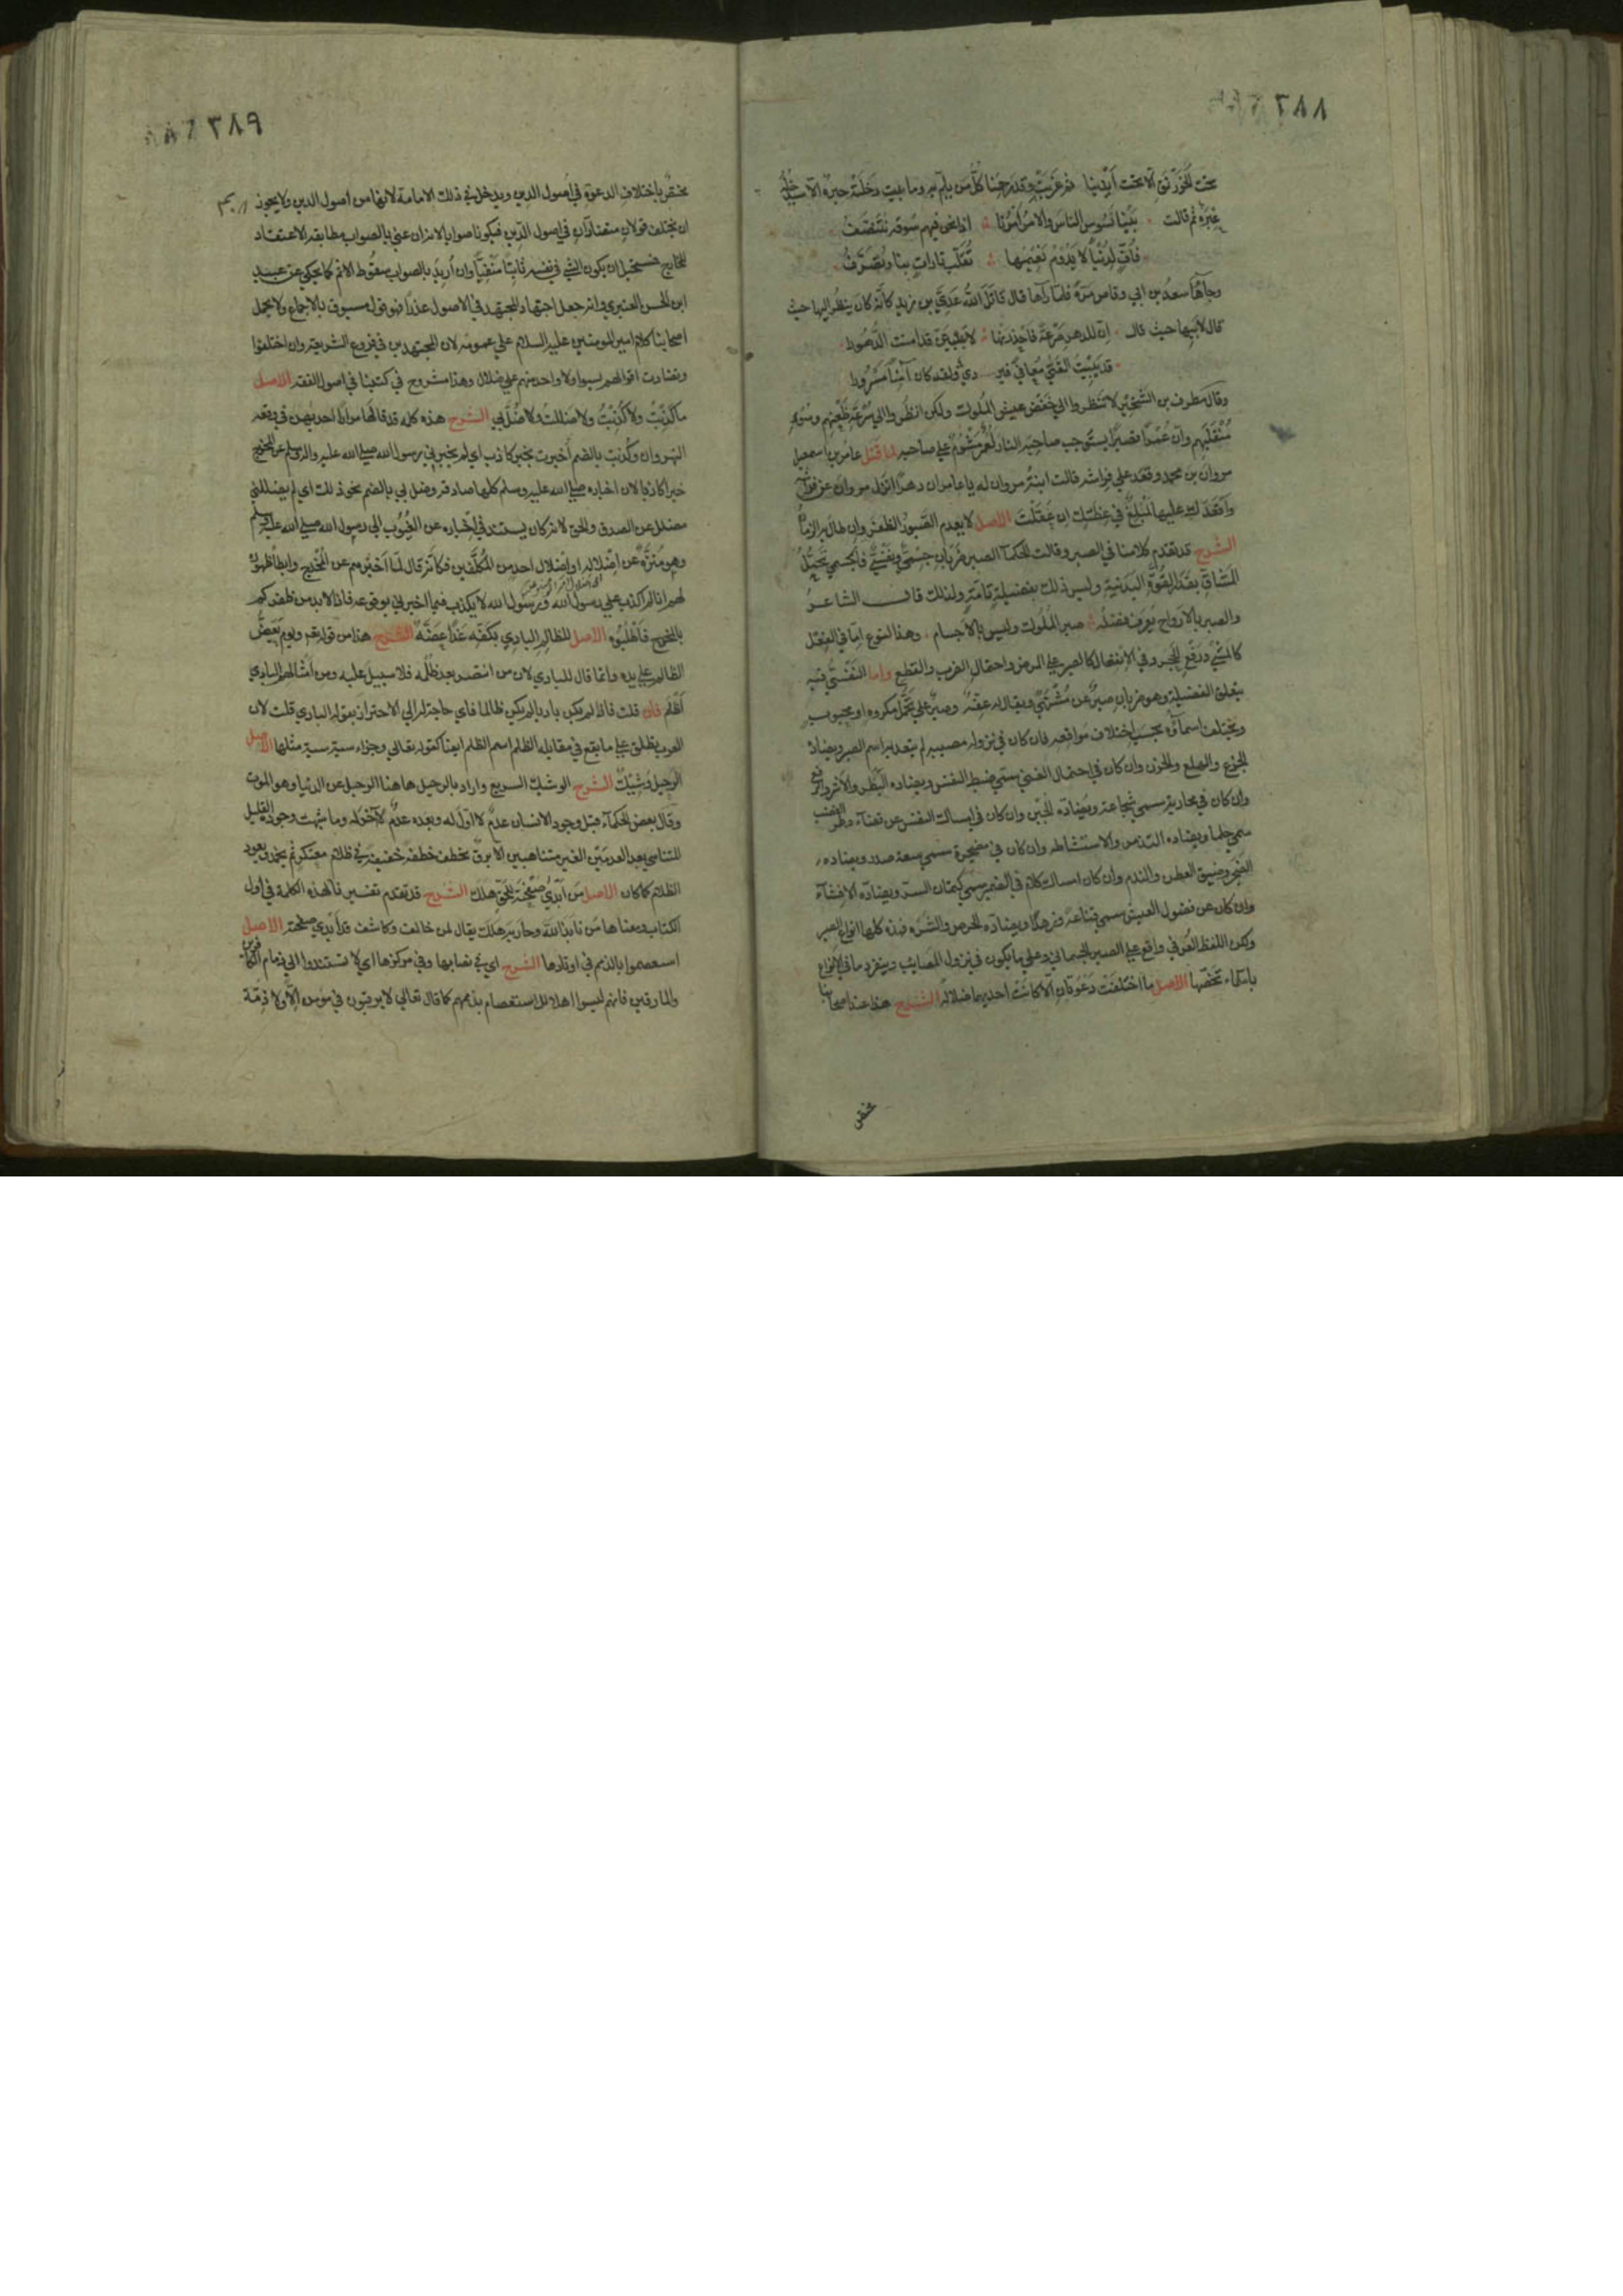 ٣٨٨
تحت الخورنق الا تحت أيدينا ثم غربت وقد رحمنا كل من يلم به وما بيت دخلته حبرة الا ستدخله
عبرة ثم قالت بينا نسوس الناس والامر أمرنا اذا نحن فيهم سوقة نتنصف
فأف لدنيا لا يدوم نعيمها تقلب تارات بنا وتصرف
وجاءها سعد بن ابي وقاص مرة فلما رآها قال قاتل الله عدي بن زيد كأنه كان ينظر اليها حيث
قال لابيها حيث قال ان للدهر صرعة فاحذرنها لا تبيتن قد امنت الدهورا
قد يبيت الفتى معافى فيردى ولقد كان آمنا مسرورا
وقال مطرف بن الشخير لا تنظروا الى خفض عيش الملوك ولكن انظروا الى سرعة ظعنهم وسوء
منقلبهم وان عمرا قصيرا يستوجب صاحبه النار لعمر مشؤم على صاحبه لما قتل عامر بن اسمعيل
مروان بن محمد وقعد على فراشه قالت ابنة مروان له يا عامر ان دهرا انزل مروان عن فراشه
وأقعدك عليها لمبلغ في عظتك ان عقلت الاصل لا يعدم الصبور الظفر وان طال به الزمان
الشرح قد تقدم كلامنا في الصبر وقالت الحكماء الصبر ضربان جسمي ونفسي فالجسمي تحمل
المشاق بقدر القوة البدنية وليس ذلك بفضيلة تامة ولذلك قال الشاعر
والصبر بالارواح يعرف فضله صبر الملوك وليس بالاجسام وهذا النوع اما في الفعل
كالمشي ورفع الحجر وفي الانفعال كالصبر على المرض واحتمال الضرب والقطع واما النفسي ففيه
يتعلق الفضيلة وهو ضربان صبر عن مشتهى ويقال له عفة وصبر على تحمل مكروه او محبوب
ويختلف اسماؤه بحسب اختلاف مواقعه فان كان في نزول مصيبة لم يتعد به اسم الصبر ويضاده
الجزع والهلع والحزن وان كان في احتمال الغنى سمي ضبط النفس ويضاده البطر والاشر والرفع
وان كان في محاربة سمي شجاعة ويضاده الجبن وان كان في امساك النفس عن قضاء وطر الغضب
سمي حلما ويضاده التذمر والاستشاطة وان كان في مضجرة سمي سعة صدر ويضاده
الضجر وضيق العطن والندم وان كان امساك كلام في الضمير سمي كتمان السر ويضاده الافشاء
وان كان عن فضول العيش سمي قناعة وزهدا ويضاده الحرص والشره فهذه كلها انواع الصبر
ولكن اللفظ العرفي واقع على الصبر الجسماني وعلى ما يكون في نزول المصائب وينفرد باقي الانواع
باسماء تخصها الاصل ما اختلفت دعوتان الا كانت احديهما ضلالة الشرح هذا عند اصحابنا
مختص
٣٨٩
مختص باختلاف الدعوة في أصول الدين ويدخل في ذلك الامامة لانها من اصول الدين ولا يجوز
ان يختلف قولان متضادان في اصول الدين فيكونا صوابا لانه ان عني بالصواب مطابقة الاعتقاد
للخارج فمستحيل ان يكون الشي في نفسه ثابتا منفيا وان أريد بالصواب سقوط الاثم كما يحكى عن عبيد
ابن الحسن العنبري وانه جعل اجتهاد المجتهد في الاصول عذرا فهو قول مسبوق بالاجماع ولا يحمل
اصحابنا كلام امير المومنين عليه السلام على عمومه لان المجتهدين في فروع الشريعة وان اختلفوا
وتضادت اقوالهم ليسوا ولا واحد منهم على ضلال وهذا مشروح في كتبنا في اصول الفقه الاصل
ما كذبت ولا كذبت ولا ضللت ولا ضل بي الشرح هذه كلمة قد قالها مرارا احديهن في وقعة
النهروان وكذبت بالضم أخبرت بخبر كاذب اي لم يخبرني رسول الله صلى الله عليه وآله وسلم عن المخدج
خبرا كاذبا لان اخباره صلى الله عليه وسلم كلها صادقة وضل بي بالضم نحو ذلك اي لم يضللني
مضلل عن الصدق والحق لانه كان يستند في اخباره عن الغيوب الى رسول الله صلى الله عليه وسلم
وهو منزه عن اضلاله او اضلال احد من المكلفين فكأنه قال لما اخبرهم عن المخدج وابطأ ظهوره
لهم انا لم اكذب على رسول الله ورسول الله لا يكذب فيما اخبرني بوقوعه فاذا لا بد من ظفركم
بالمخدج فاطلبوه الاصل للظالم البادي بكفه غدا عضة الشرح هذا من قوله تع ويوم يعض
الظالم على يديه وانما قال للبادي لان من انتصر بعد ظلمه فلا سبيل عليه ومن امثالهم البادي
أظلم فان قلت فاذا لم يكن باديا لم يكن ظالما فاي حاجة له الى الاحتراز بقوله البادي قلت لان
العرب يطلق على ما يقع في مقابلة الظلم اسم الظلم ايضا كقوله تعالى وجزاء سيئة سيئة مثلها الاصل
الرحيل وشيك الشرح الوشيك السريع واراد بالرحيل هاهنا الرحيل عن الدنيا وهو الموت
وقال بعض الحكماء قبل وجود الانسان عدم لا اول له وبعده عدم لا آخر له وما شبهت وجوده القليل
المتناهي بين العدمين الغير متناهيين الا ببرق يخطف خطفة خفيفة في ظلام معتكر ثم يخمد ويعود
الظلام كما كان الاصل من أبدى صفحته للحق هلك الشرح قد تقدم تفسيرنا لهذه الكلمة في أول
الكتاب ومعناها من نابذ الله وحاربه هلك يقال لمن خالف وكاشف قد أبدى صفحته الاصل
استعصموا بالذمم في اوتادها الشرح اي في نصابها وفي مركزها اي لا تستندوا الى ذمام الكافرين
والمارقين فانهم ليسوا اهلا للاستعصام بذممهم كما قال تعالى لا يرقبون في مؤمن الا ولا ذمة